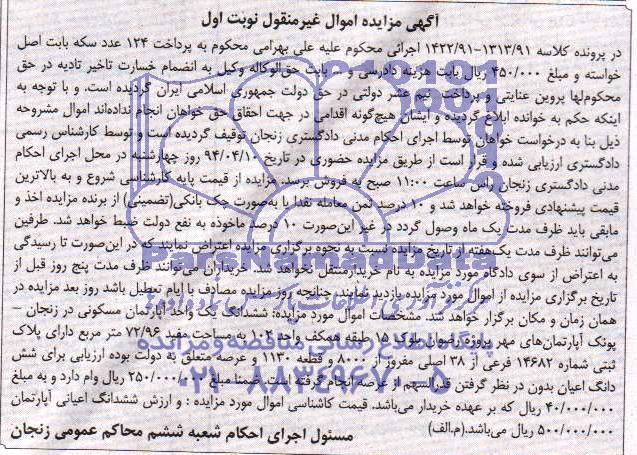 آگهی مزایده اموال غیرمنقول نوبت اول
در پرونده کلاسه ۱۳۱۳/۹۱-۱۴۲۲/۹۱ اجرائی محکوم علیه علی بهرامی محکوم به پرداخت ۱۲۴ عدد سکه بابت اصل
خواسته و مبلغ ۴۵۰/۰۰۰ ریال بابت هزینه دادرسی و ... بابت حق‌الوکاله وکیل به انضمام خسارت تاخیر تادیه در حق
محکوم‌لها پروین عنایتی و پرداخت نیم عشر دولتی در حق دولت جمهوری اسلامی ایران گردیده است. و با توجه به
اینکه حکم به خوانده ابلاغ گردیده و ایشان هیچ‌گونه اقدامی در جهت احقاق حق خواهان انجام نداده‌اند اموال مشروحه
ذیل بنا به درخواست خواهان توسط اجرای احکام مدنی دادگستری زنجان توقیف گردیده است و توسط کارشناس رسمی
دادگستری ارزیابی شده و قرار است از طریق مزایده حضوری در تاریخ ۹۴/۰۴/۱۰ روز چهارشنبه در محل اجرای احکام
مدنی دادگستری زنجان راس ساعت ۱۱:۰۰ صبح به فروش برسد. مزایده از قیمت پایه کارشناسی شروع و به بالاترین
قیمت پیشنهادی فروخته خواهد شد و ۱۰ درصد ثمن معامله نقدا یا به‌صورت چک بانکی(تضمینی) از برنده مزایده اخذ و
مابقی باید ظرف مدت یک ماه وصول گردد در غیر این‌صورت ۱۰ درصد ماخوذه به نفع دولت ضبط خواهد شد. طرفین
می‌توانند ظرف مدت یک‌هفته از تاریخ مزایده نسبت به نحوه برگزاری مزایده اعتراض نمایند که در این‌صورت تا رسیدگی
به اعتراض از سوی دادگاه مورد مزایده به نام خریدار منتقل نخواهد شد. خریداران می‌توانند ظرف مدت پنج روز قبل از
تاریخ برگزاری مزایده از اموال مورد مزایده بازدید نمایند، چنانچه روز مزایده مصادف با ایام تعطیل باشد روز بعد مزایده در
همان زمان و مکان برگزار خواهد شد. مشخصات اموال مورد مزایده: ششدانگ یک واحد آپارتمان مسکونی در زنجان –
پونک آپارتمان‌های مهر پروژه رضوان بلوک ۱۵ طبقه همکف واحد ۱۰۲ به مساحت مفید ۷۲/۹۶ متر مربع دارای پلاک
ثبتی شماره ۱۴۶۸۲ فرعی از ۳۸ اصلی مفروز از ۸۰۰۰ و قطعه ۱۱۳۰ و عرصه متعلق به دولت بوده ارزیابی برای شش
دانگ اعیان بدون در نظر گرفتن قدرالسهم از عرصه انجام گرفته است. ضمنا مبلغ ۲۵۰/۰۰۰/۰۰۰ ریال وام دارد و به مبلغ
۴۰/۰۰۰/۰۰۰ ریال که بر عهده خریدار می‌باشد. قیمت کاشناسی اموال مورد مزایده : و ارزش ششدانگ اعیانی آپارتمان
۵۰۰/۰۰۰/۰۰۰ ریال می‌باشد.(م.الف)
مسئول اجرای احکام شعبه ششم محاکم عمومی زنجان
ParsNamadData
پایگاه اطلاع رسانی مناقصه و مزایده
۰۲۱-۸۸۳۴۹۶۷۰-۵